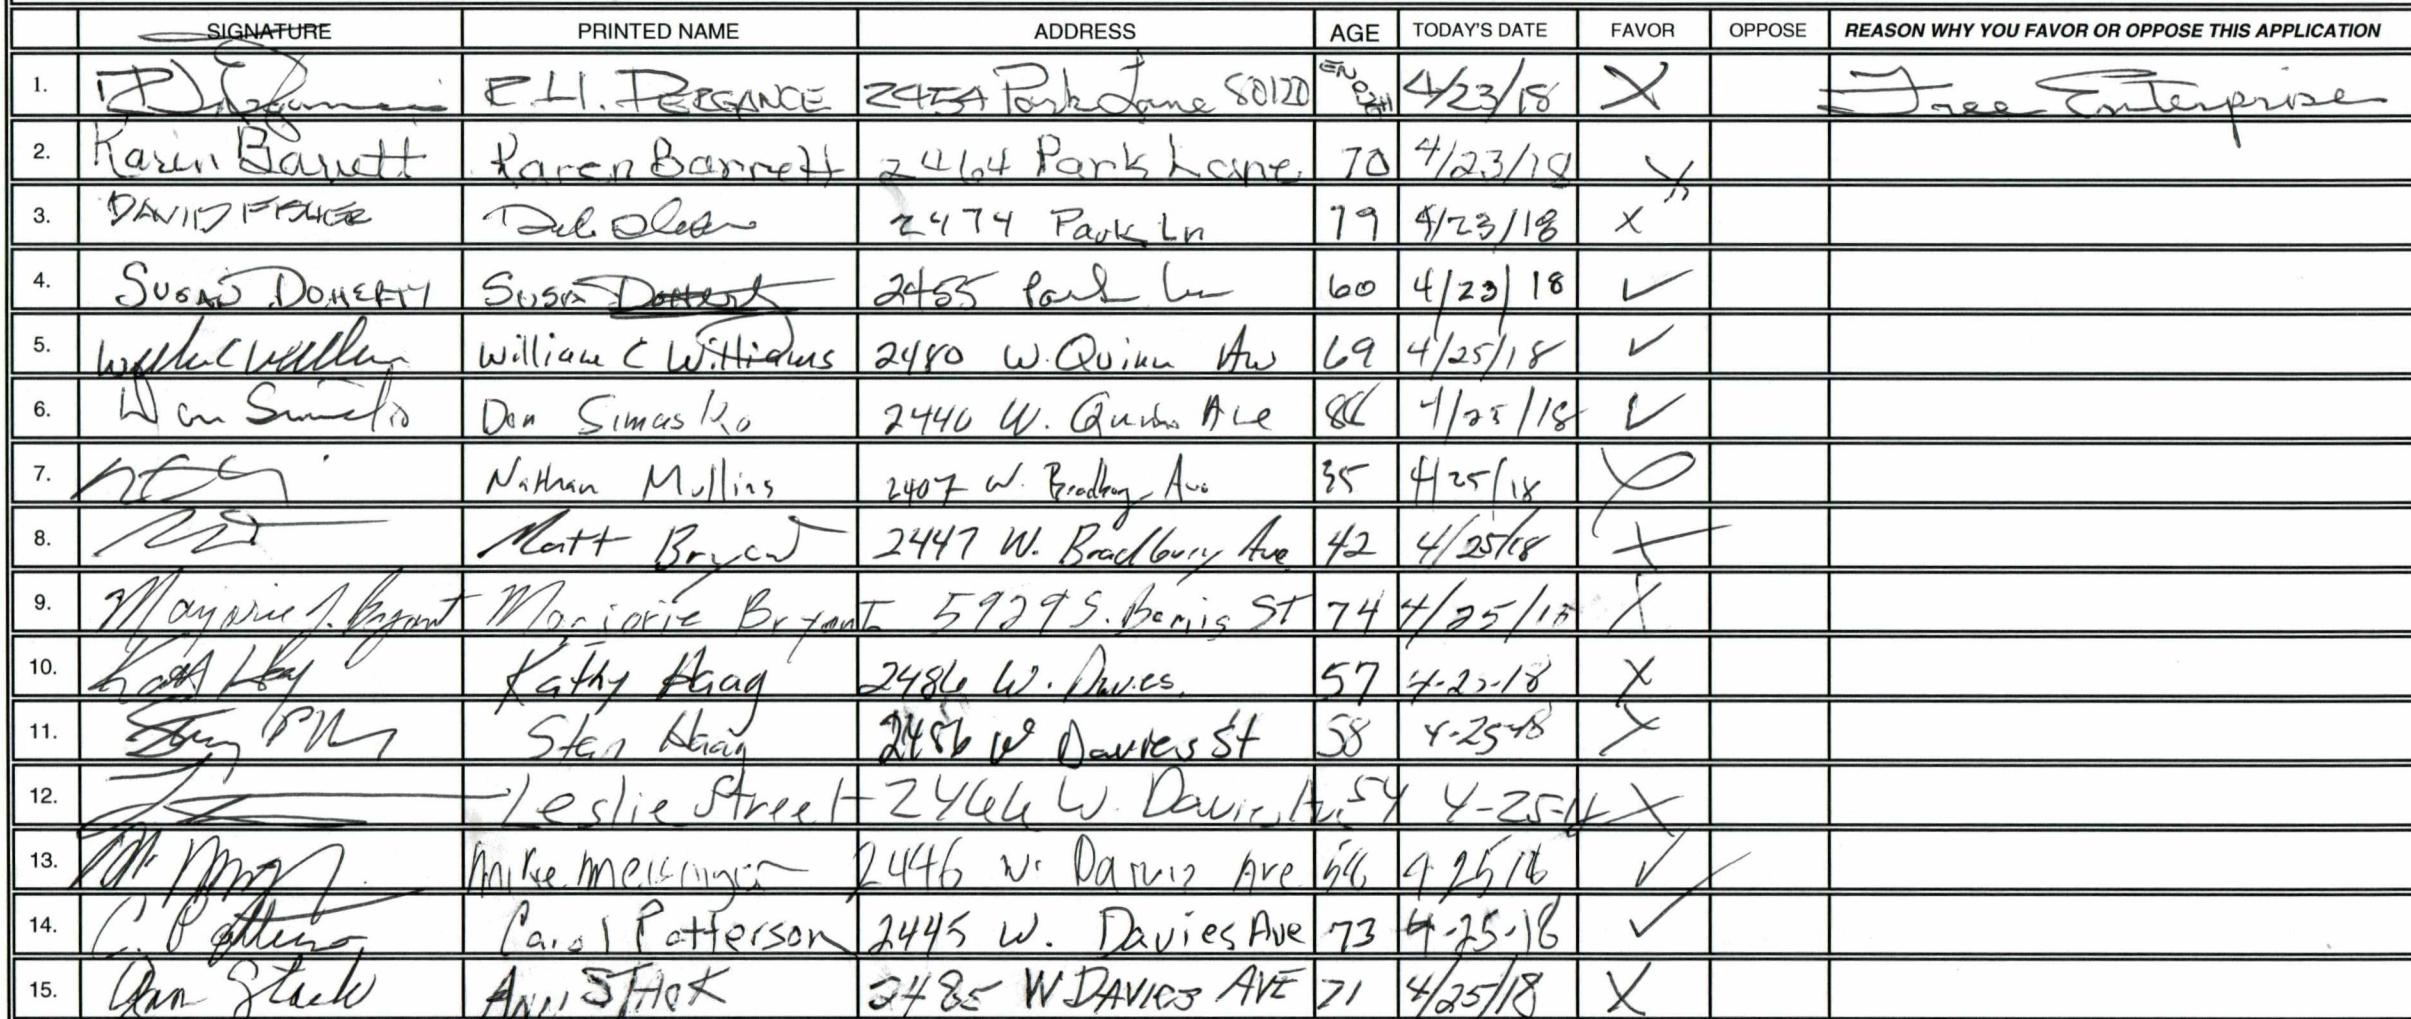 SIGNATURE PRINTED NAME ADDRESS AGE TODAY'S DATE FAVOR OPPOSE REASON WHY YOU FAVOR OR OPPOSE THIS APPLICATION
1. Park Lane 80120 4/23/18 X Free Enterprise
2. Karen Barrett Karen Barrett 2464 Park Lane 70 4/23/18 X
3. DAVID FISHER 2474 Park Ln 79 4/23/18 X
4. SUSAN DOHERTY Susan Doherty 2455 Park Ln 60 4/23/18 ✓
5. William C Williams 2480 W. Quinn Av 69 4/25/18 ✓
6. Don Simasko Don Simasko 2440 W. Quinn Ave 4/25/18 ✓
7. Nathan Mullins 2407 W. Bradbury Ave 35 4/25/18 X
8. Matt Bryant 2447 W. Bradbury Ave 42 4/25/18 X
9. Marjorie J. Bryant Marjorie Bryant 5929 S. Bemis St 74 4/25/18 X
10. Kathy Haag 2486 W. Davies 57 X
11. Stan Haag 2486 W Davies St 58 4-25-18 X
12. Leslie Street 2466 W. Davies 54 4-25- X
13. Mike 2446 W. Ave ✓
14. C. Patterson Carol Patterson 2445 W. Davies Ave 73 4-25-18 ✓
15. Ann Stack ANN STACK 2485 W DAVIES AVE 71 4/25/18 X